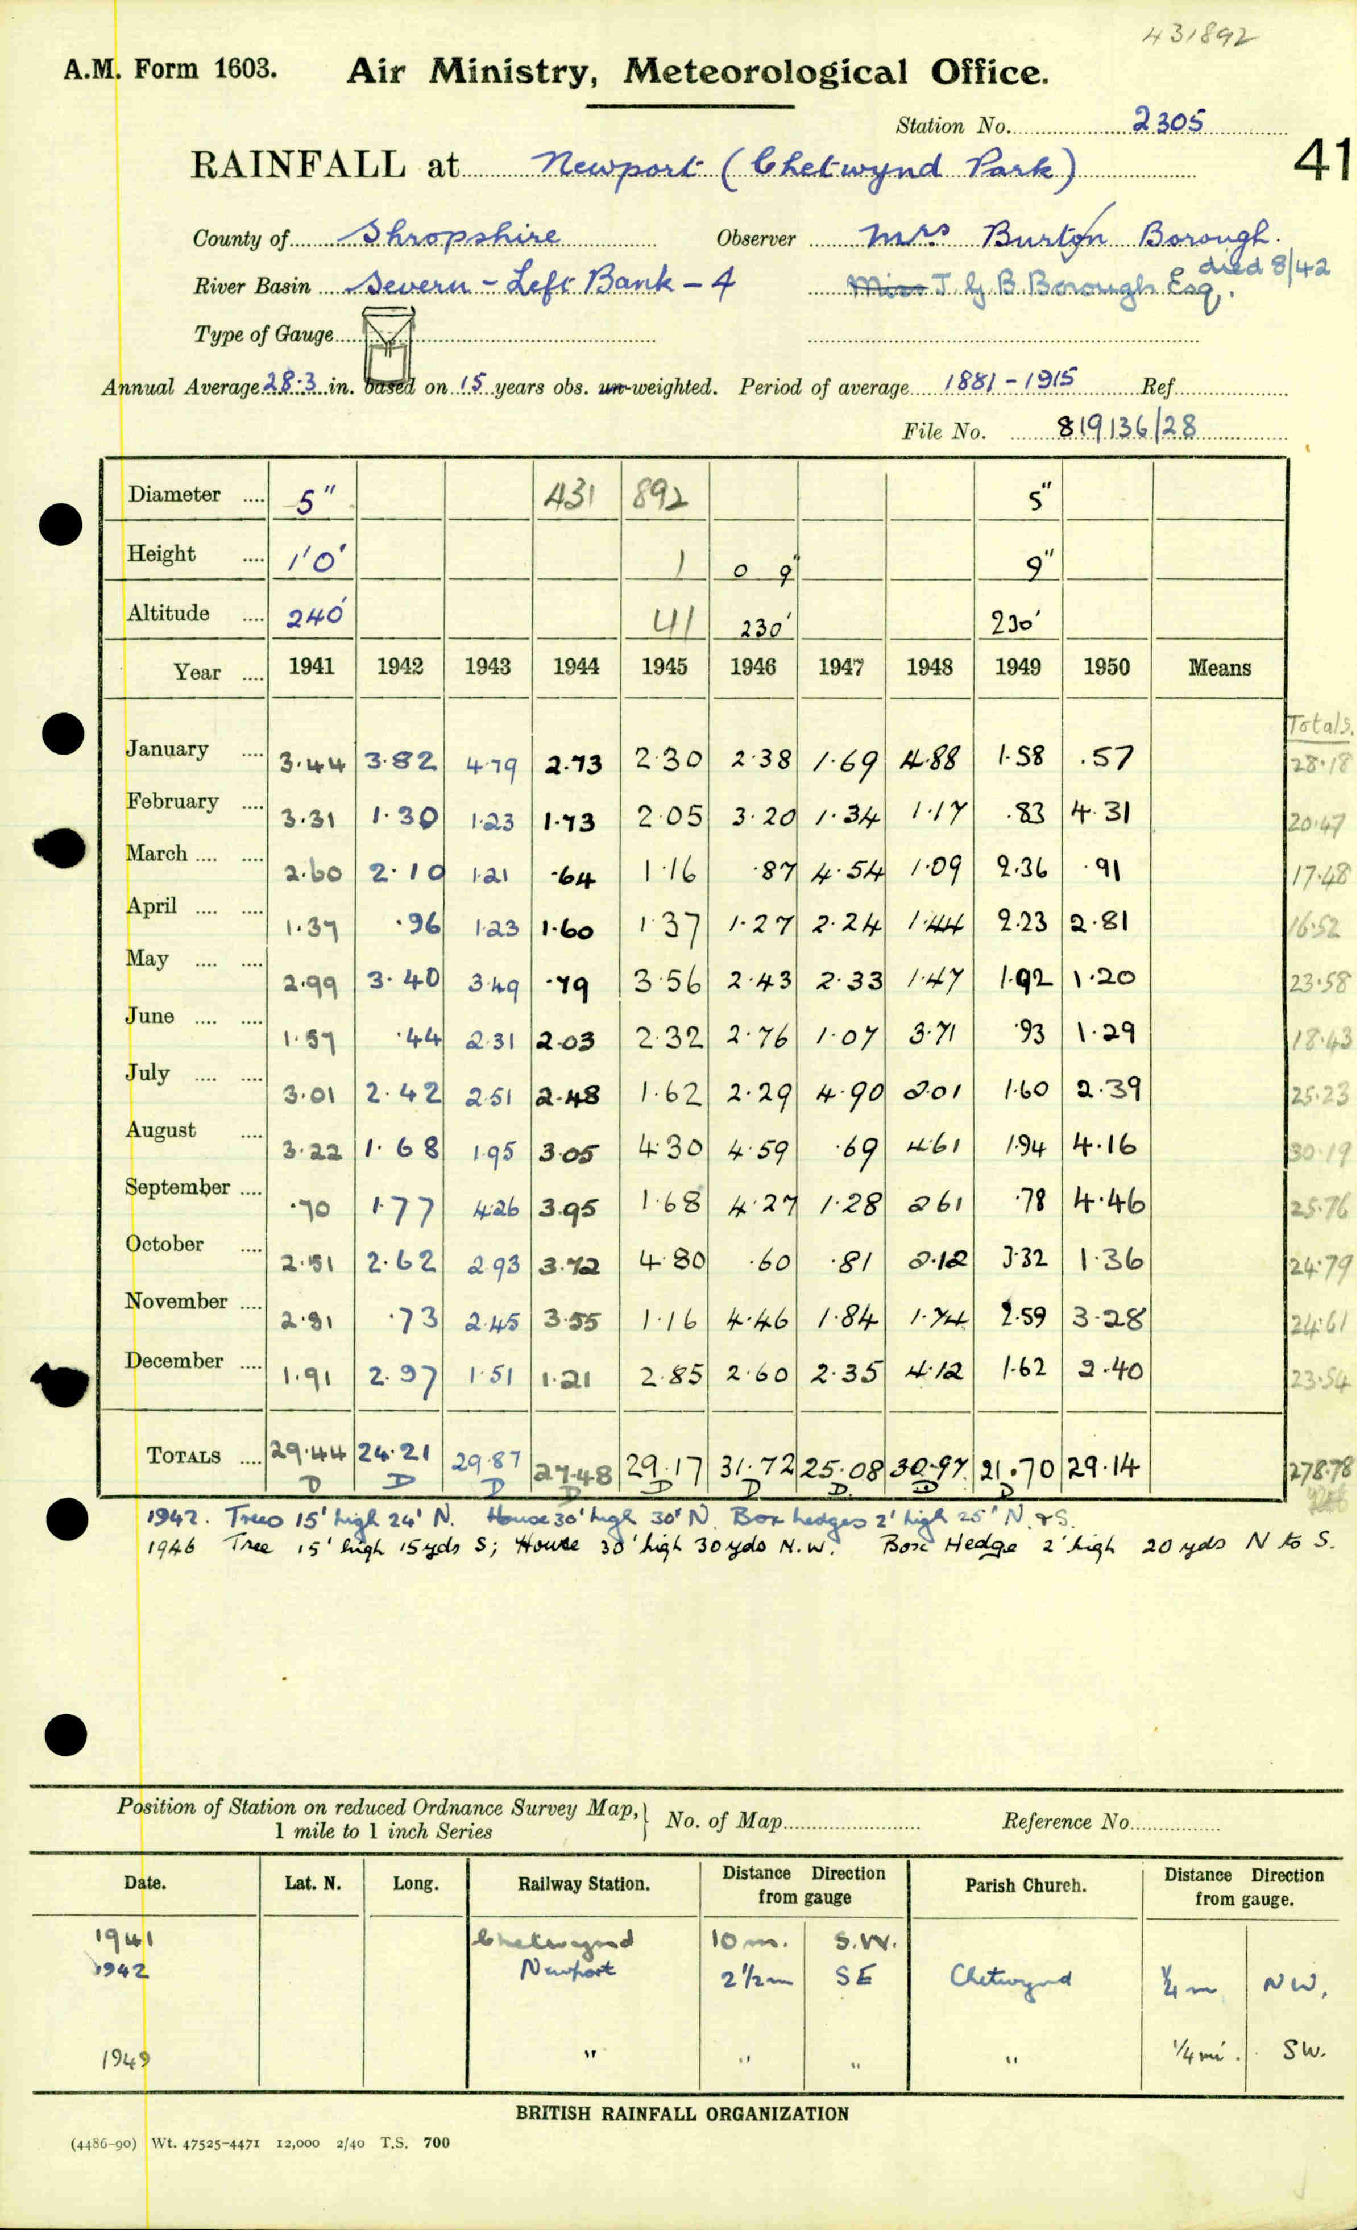 431892
A.M. Form 1603. Air Ministry, Meteorological Office.
Station No. 2305
RAINFALL at Newport (Chetwynd Park) 41
County of Shropshire Observer Mrs Burton Borough.
died 8/42
River Basin Severn - Left Bank - 4 Miss J. G. B. Borough Esq.
Type of Gauge
Annual Average 28.3 in. based on 15 years obs. un-weighted. Period of average 1881-1915 Ref
File No. 819136/28
Diameter .... 5" 431 892 5"
Height .... 1'0" 1 0 9" 9"
Altitude .... 240' 41 230' 230'
Year .... 1941 1942 1943 1944 1945 1946 1947 1948 1949 1950 Means
Totals.
January .... 3.44 3.82 4.79 2.73 2.30 2.38 1.69 4.88 1.58 .57 28.18
February .... 3.31 1.30 1.23 1.73 2.05 3.20 1.34 1.17 .83 4.31 20.47
March .... .... 2.60 2.10 1.21 .64 1.16 .87 4.54 1.09 2.36 .91 17.48
April .... .... 1.37 .96 1.23 1.60 1.37 1.27 2.24 1.44 2.23 2.81 16.52
May .... .... 2.99 3.40 3.49 .79 3.56 2.43 2.33 1.47 1.92 1.20 23.58
June .... .... 1.57 .44 2.31 2.03 2.32 2.76 1.07 3.71 .93 1.29 18.43
July .... .... 3.01 2.42 2.51 2.48 1.62 2.29 4.90 2.01 1.60 2.39 25.23
August .... 3.22 1.68 1.95 3.05 4.30 4.59 .69 4.61 1.94 4.16 30.19
September .... .70 1.77 4.26 3.95 1.68 4.27 1.28 2.61 .78 4.46 25.76
October .... 2.51 2.62 2.93 3.72 4.80 .60 .81 2.12 3.32 1.36 24.79
November .... 2.81 .73 2.45 3.55 1.16 4.46 1.84 1.74 2.59 3.28 24.61
December .... 1.91 2.97 1.51 1.21 2.85 2.60 2.35 4.12 1.62 2.40 23.54
TOTALS .... 29.44 24.21 29.87 27.48 29.17 31.72 25.08 30.97 21.70 29.14 278.78
D D D D D D D. D D
1942. Trees 15' high 24' N. House 30' high 30' N. Box hedges 2' high 25' N. & S.
1946 Tree 15' high 15yds S; House 30' high 30yds N.W. Box Hedge 2' high 20 yds N to S.
Position of Station on reduced Ordnance Survey Map, 1 mile to 1 inch Series } No. of Map Reference No.
Date. Lat. N. Long. Railway Station. Distance Direction from gauge Parish Church. Distance Direction from gauge.
1941 Chetwynd 10 m. S.W.
1942 Newport 2 1/2 m SE Chetwynd 1/4 m NW.
1949 " " " " 1/4 mi. SW.
BRITISH RAINFALL ORGANIZATION
(4486-90) Wt. 47525-4471 12,000 2/40 T.S. 700